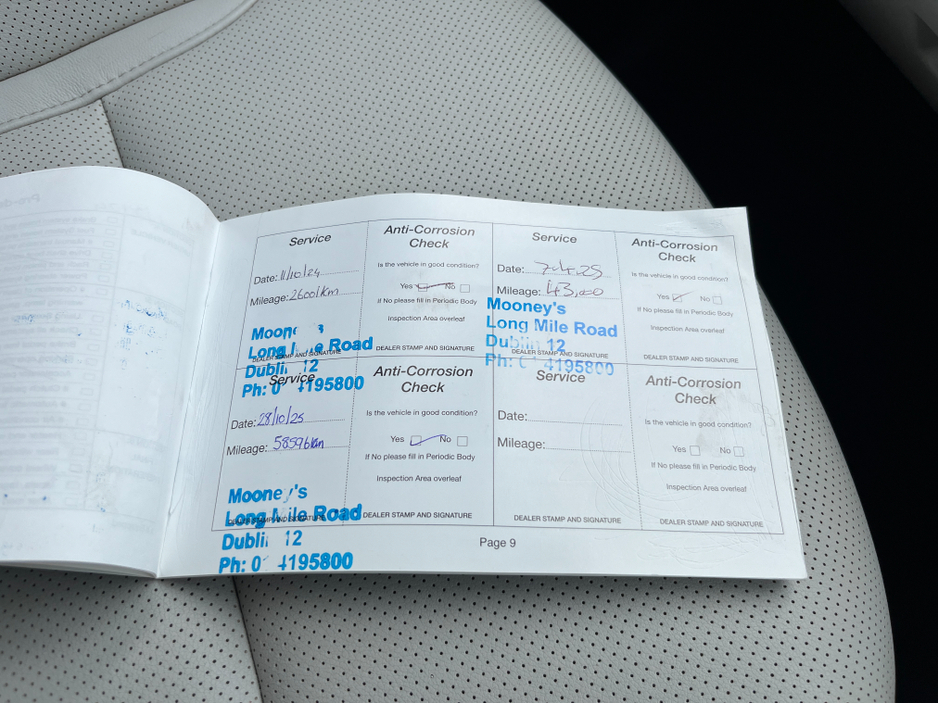 Service
Date: 11/10/24
Mileage: 26001km
Long Road
Dubli 12
DEALER STAMP AND SIGNATURE
Ph: 0 4195800
Anti-Corrosion
Check
Is the vehicle in good condition?
Yes No
If No please fill in Periodic Body
Inspection Area overleaf
DEALER STAMP AND SIGNATURE
Service
Date: 7.4.25
Mileage: 43,000
Mooney's
Long Mile Road
Dublin 12
DEALER STAMP AND SIGNATURE
Ph: 4195800
Anti-Corrosion
Check
Is the vehicle in good condition?
Yes No
If No please fill in Periodic Body
Inspection Area overleaf
DEALER STAMP AND SIGNATURE
Service
Date: 28/10/25
Mileage: 58596km
Mooney's
Long Mile Road
DEALER STAMP AND SIGNATURE
Dubli 12
Ph: 0 4195800
Anti-Corrosion
Check
Is the vehicle in good condition?
Yes No
If No please fill in Periodic Body
Inspection Area overleaf
DEALER STAMP AND SIGNATURE
Service
Date:
Mileage:
DEALER STAMP AND SIGNATURE
Anti-Corrosion
Check
Is the vehicle in good condition?
Yes No
If No please fill in Periodic Body
Inspection Area overleaf
DEALER STAMP AND SIGNATURE
Page 9